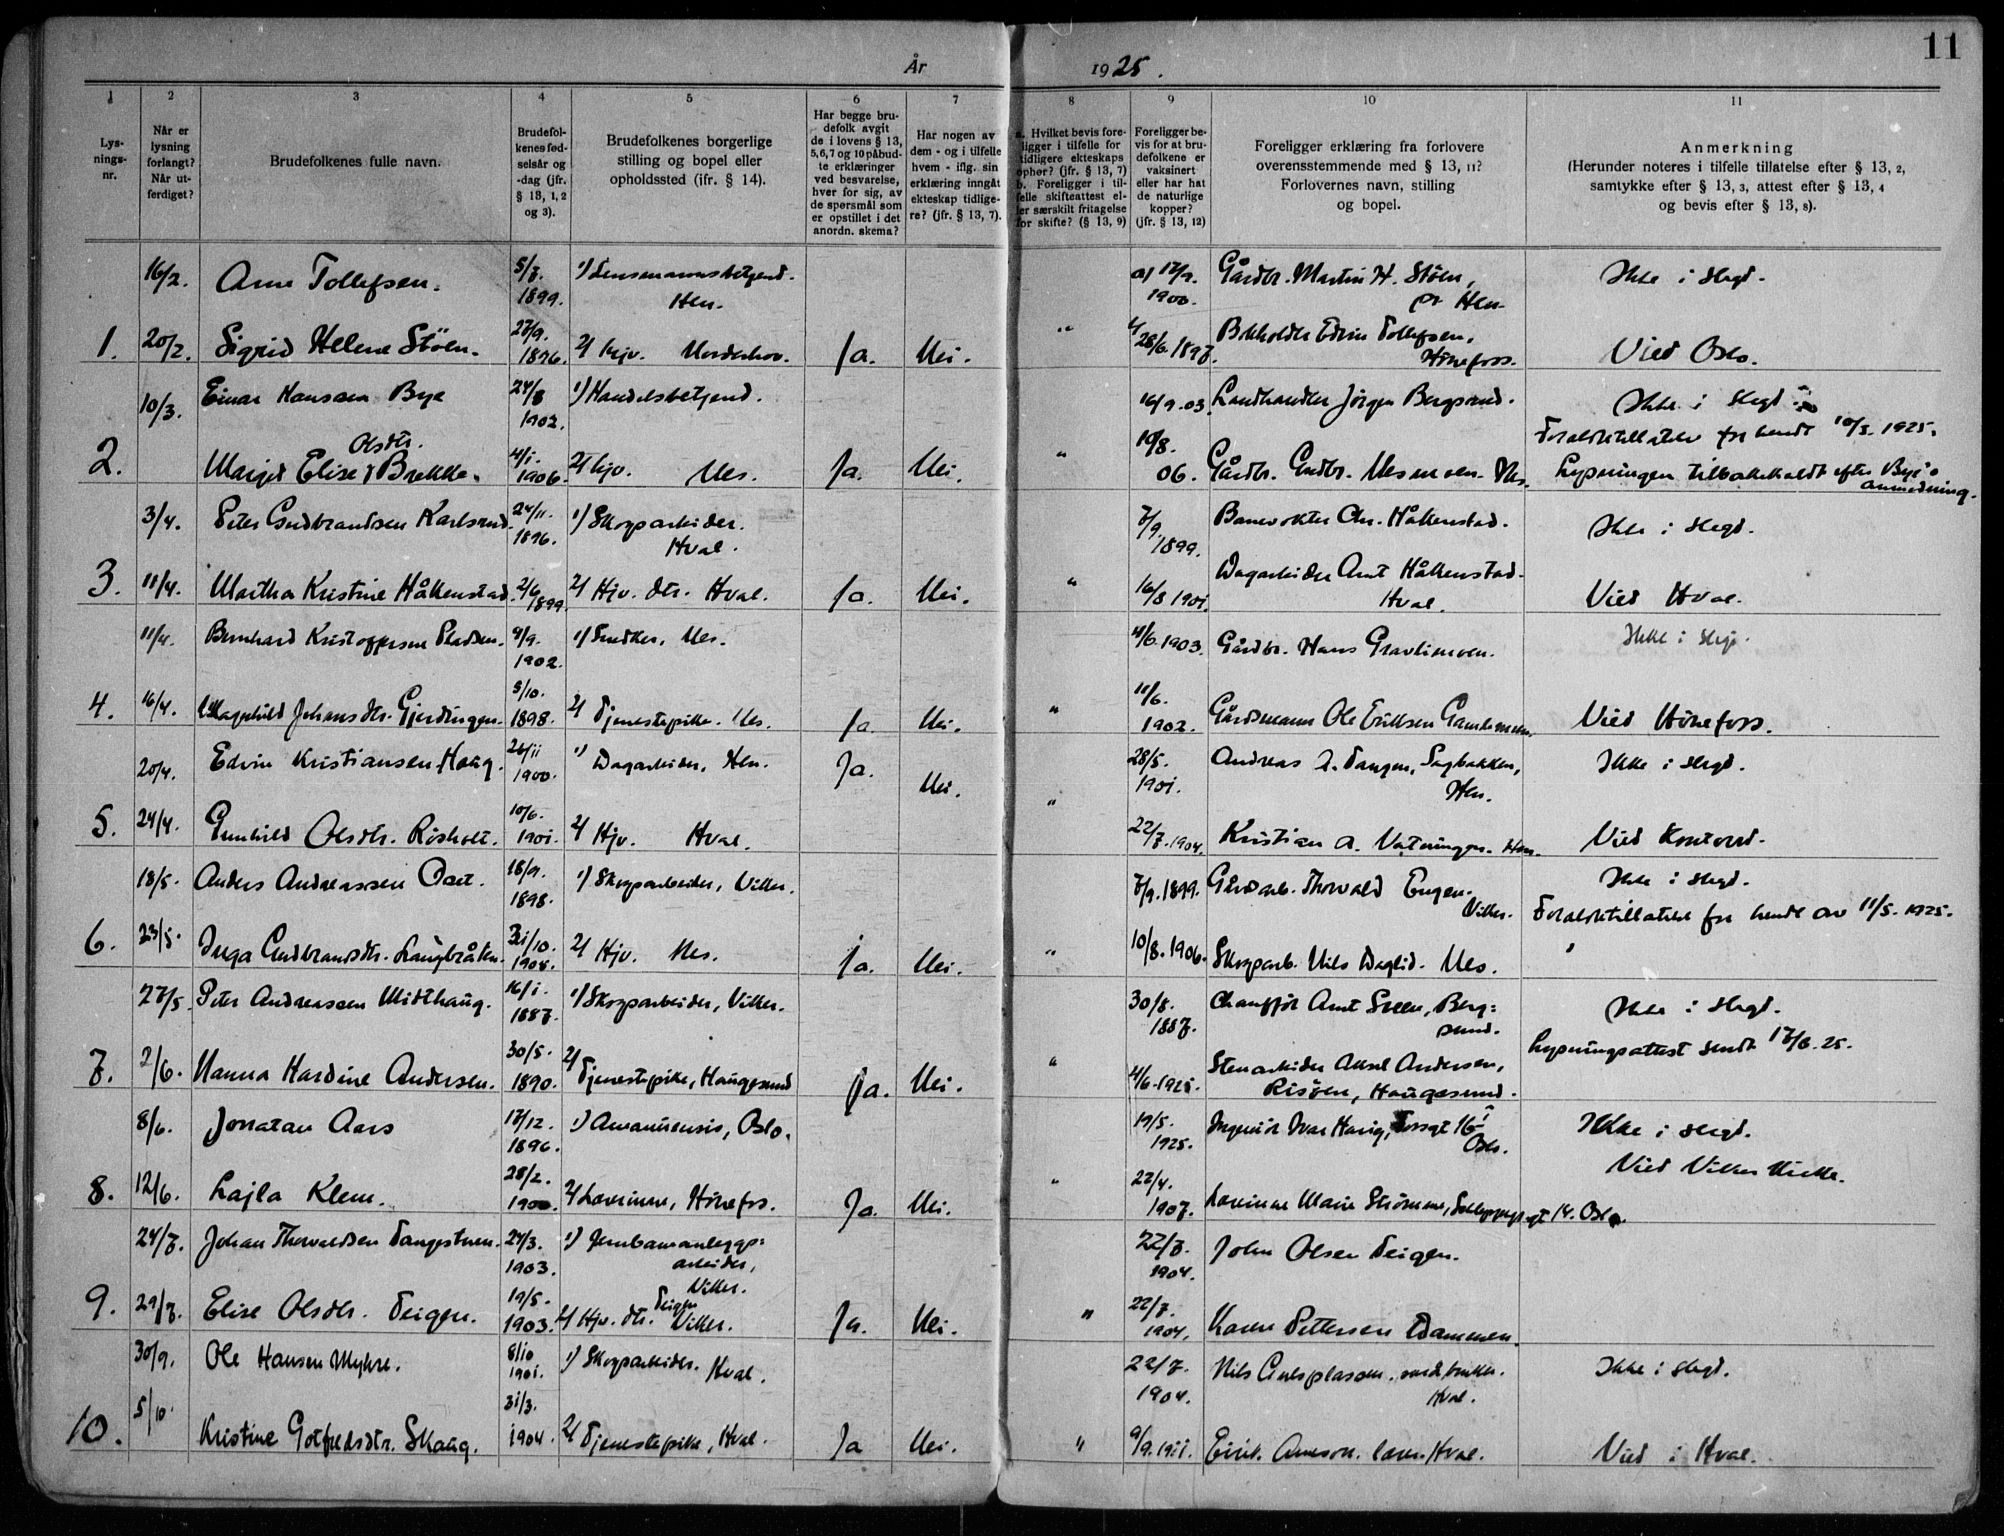 11
År
1925.
1
2
3
4
5
6
7
8
9
10
11
Lys-
nings-
nr.
Når er
lysning
forlangt?
Når ut-
ferdiget?
Brudefolkenes fulle navn.
Brudefol-
kenes fød-
selsår og
-dag (jfr.
§ 13, 1, 2
og 3).
Brudefolkenes borgerlige
stilling og bopel eller
opholdssted (ifr. § 14).
Har begge bru-
defolk avgit
de i lovens § 13,
5, 6, 7 og 10 påbud-
te erklæringer
ved besvarelse,
hver for sig, av
de spørsmål som
er opstillet i det
anordn. skema?
Har nogen av
dem - og i tilfelle
hvem - iflg. sin
erklæring inngåt
ekteskap tidlige-
re? (jfr. § 13, 7).
a. Hvilket bevis fore-
ligger i tilfelle for
tidligere ekteskaps
ophør? (jfr. § 13, 7)
b. Foreligger i til-
felle skifteattest el-
ler særskilt fritagelse
for skifte? (§ 13, 9)
Foreligger be-
vis for at bru-
defolkene er
vaksinert
eller har hat
de naturlige
kopper?
(jfr. § 13, 12)
Foreligger erklæring fra forlovere
overensstemmende med § 13, 11?
Forlovernes navn, stilling
og bopel.
Anmerkning
(Herunder noteres i tilfelle tillatelse efter § 13, 2,
samtykke efter § 13, 3, attest efter § 13, 4
og bevis efter § 13, 8).
16/2. Arne Tollefsen. 5/7. 1899. 1) Lensmannsbetjent. Hen. 17/9. 1900. Gårdbr. Martin H. Støen, pr Hen. Ikke i slegt.
1. 20/2. Sigrid Helene Støen. 27/9. 1896. 2) Hjv. Norderhov. Ja. Nei. " 28/6. 1897. Edvin Tollefsen, Hønefoss. Vied Oslo.
10/3. Einar Hansen Bye 24/8 1902. 1) Handelsbetjent. 16/9. 03. Landhandler Jörgen Bergsund. Ikke i slegt.
2. Margit Elise Olsdtr. Brekke. 4/1. 1906. 2) Hjv. Nes. Ja. Nei. " 10/8. 06. Gårdbr. Gudbr. Nesmoen. Nes. 10/3. 1925. Lysningen tilbakekaldt efter Bye's anmodning.
3/4. Peter Gudbrandsen Karlsrud. 24/11. 1896. 1) Skogsarbeider. Hval. 7/9. 1899. Banevokter Chr. Håkenstad. Ikke i slegt.
3. 11/4. Martha Kristine Håkenstad. 2/6 1899. 2) Hjv. dtr. Hval. Ja. Nei. " 16/8 1901. Dagarbeider Arnt Håkenstad. Hval. Vied Hval.
11/4. Bernhard Kristoffersen Pladsen. 9/9. 1902. 1) Snedker, Nes. 4/6. 1903. Gårdbr. Hans Gravlimoen. Ikke i slegt.
4. 16/4. Ragnhild Johansdtr. Gjerdingen. 5/10. 1898. 2) Tjenestepike. Nes. Ja. Nei. " 11/6. 1902. Gårdsmann Ole Eriksen Gamlemoen. Vied Hönefoss.
20/4. Edvin Kristiansen Haug. 26/11 1900. 1) Dagarbeider, Hen. Ja. Nei. 28/5. 1901. Andreas A. Tangen, Sagbakken, Hen. Ikke i slegt.
5. 24/4. Gunhild Olsdtr. Rösholt. 10/6. 1901. 2) Hjv. Hval. " 22/7. 1904. Kristian A. Vatningen. Hen. Vied
18/5. Anders Andreassen 18/9. 1898. 1) Skogsarbeider, Viker. 7/9. 1899. Gårdarb. Thorvald Engen. Viker. Ikke i slegt.
6. 23/5. Inga Gudbrandsdtr. Langbråten. 31/10. 1905. 2) Hjv. Nes. Ja. Nei. " 10/8. 1906. Skogsarb. Nils Daglid. Nes. av 11/5. 1925.
27/5. Peter Andreassen Midthaug. 16/1. 1887. 1) Skogsarbeider, Viker. 30/8. 1887. Chauffør Arnt Green, Berg: sund. Ikke i slegt.
7. 2/6. Nanna Hardine Andersen. 30/5. 1890. 2) Tjenestepike, Haugesund Ja. Nei. " 4/6. 1925. Stenarbeider Aksel Andersen, Risöen, Haugesund. Lysningsattest sendt 17/6. 25.
8/6. Jonatan Aars 17/12. 1896. 1) Amanuensis, Oslo. 19/5. 1925. Ingeniör Ivar Haug, 16 Oslo. Ikke i slegt.
8. 12/6. Lajla Klem. 28/2. 1900. 2) Lærerinne, Hönefos. Ja. Nei. " 22/4. 1907. Lærerinne Marie Strömme, 14. Oslo. Vied Viker Kirke.
24/7. Johan Thorvaldsen Tangestuen. 24/3. 1903. 1) Jernbaneanleggs: arbeider, Viker. 22/7. 1904. John Olsen Teigen.
9. 29/7. Elise Olsdtr. Teigen. 19/5. 1903. 2) Hjv. dtr. Teigen Viker. Ja. Nei. " 22/7. 1904. Karen Pettersen Dammen.
30/9. Ole Hansen Myhre. 8/10 1901. 1) Skogsarbeider. Hval. 22/7. 1904. Nils Hval. Ikke i slegt.
10. 5/10. Kristine Gotfredsdtr. Skaug. 31/3. 1904. 2) Tjenestepike, Hval. Ja Nei. " 9/9. 1911. Eirik Arneson. lærer. Hval. Vied i Hval.